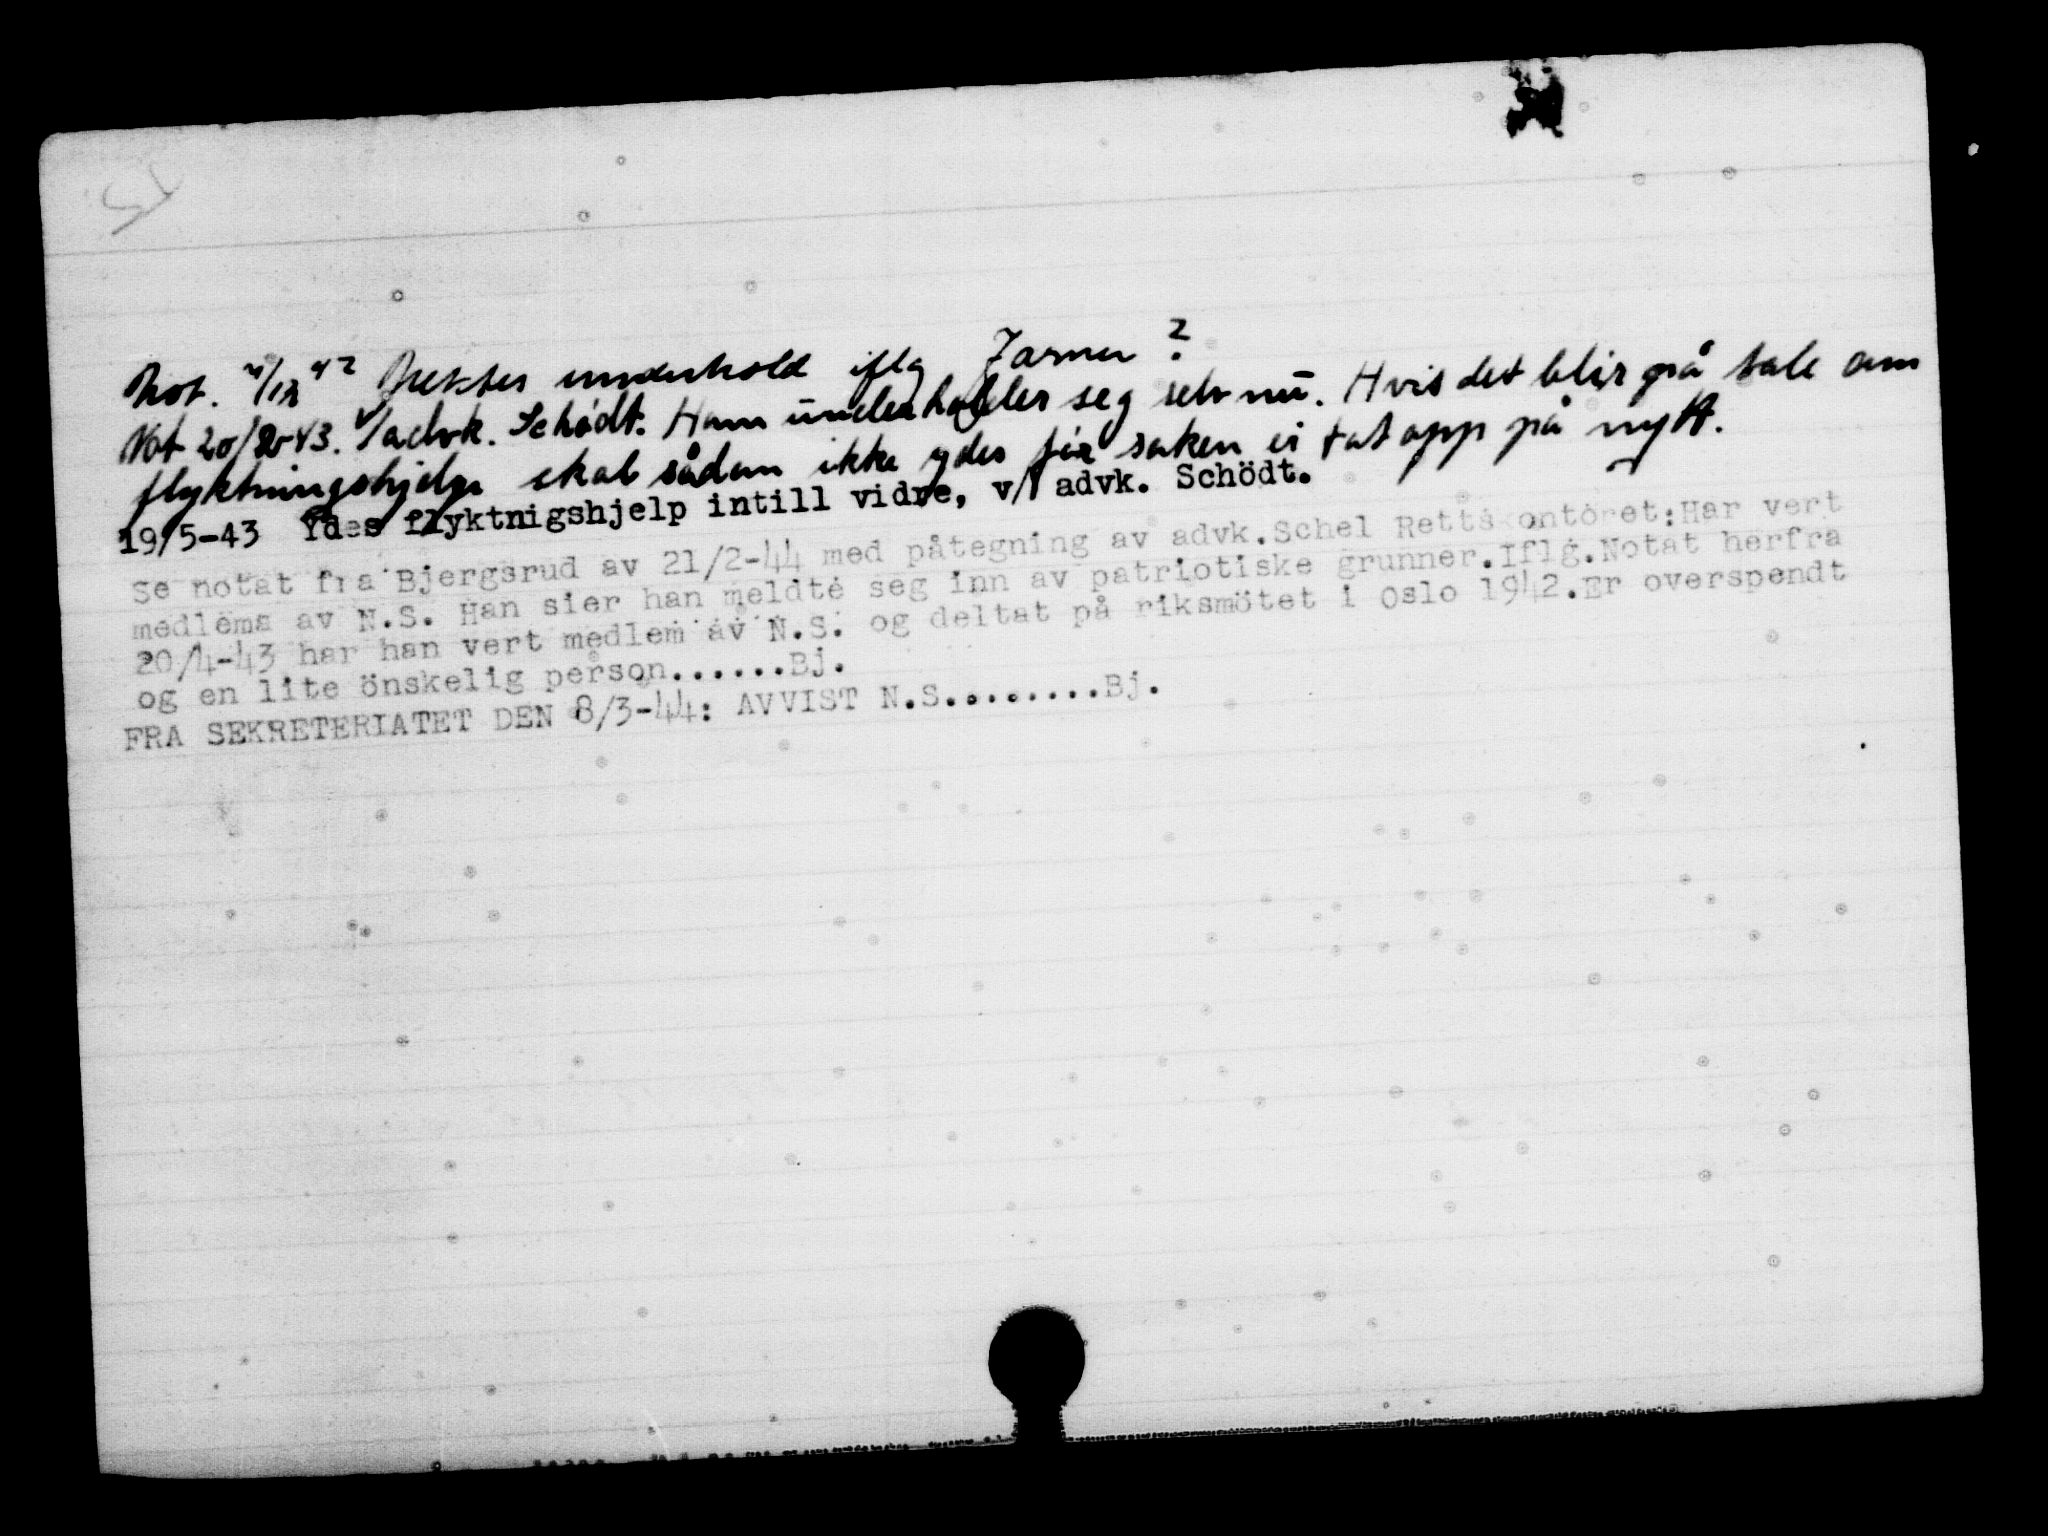 Not. 4/12 42 Nektes underhold iflg Jarner?
Not 20/2-43. v/advk. Schödt. Ham underholder seg selv nu. Hvis det blir på tale om
flyktningshjelp skal sådan ikke ydes för saken er tat opp på nytt.
19/5-43 Ydes flyktnigshjelp intill vidre, v/ advk. Schödt.
Se notat fra Bjergsrud av 21/2-44 med påtegning av advk.Schel Rettskontoret:Har vert
medlems av N.S. Han sier han meldte seg inn av patriotiske grunner.Iflg.Notat herfra
20/4-43 har han vert medlem av N.S. og deltat på riksmötet i Oslo 1942.Er overspendt
og en lite önskelig person......Bj.
FRA SEKRETERIATET DEN 8/3-44: AVVIST N.S........Bj.